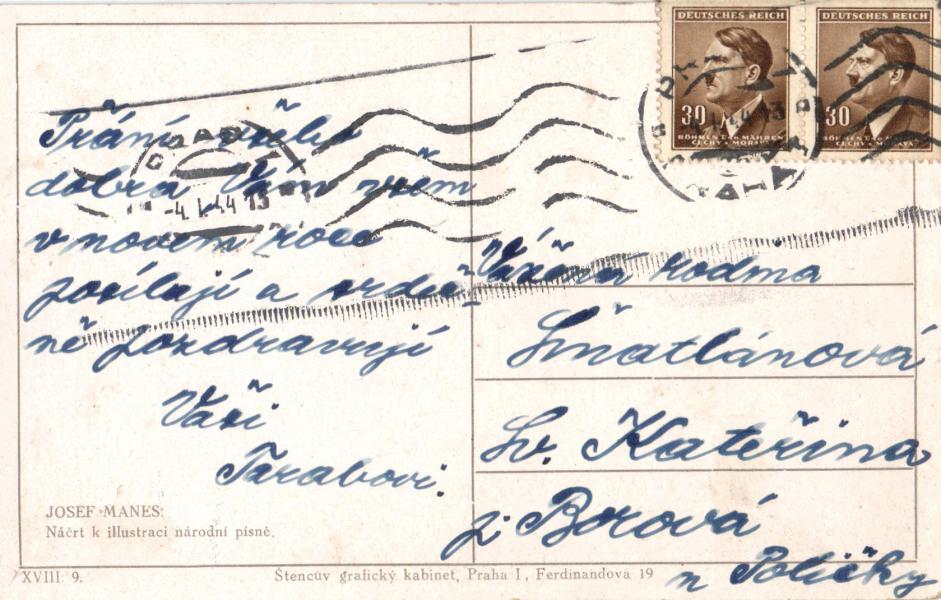 Přání všeho
dobra Vám všem
v novém roce
posílají a srdeč-
ně pozdravují
Vaši
Tarabovi.
JOSEF MANES:
Náčrt k illustraci národní písně.
XVIII. 9.
Štencův grafický kabinet, Praha I, Ferdinandova 19
DEUTSCHES REICH
30
BÖHMEN U. MÄHREN
ČECHY A MORAVA
DEUTSCHES REICH
30
BÖHMEN U. MÄHREN
ČECHY A MORAVA
-4.I.44 13
PRAHA
Vážená rodina
Šmatlánová
Sv. Kateřina
p. Borová
u Poličky